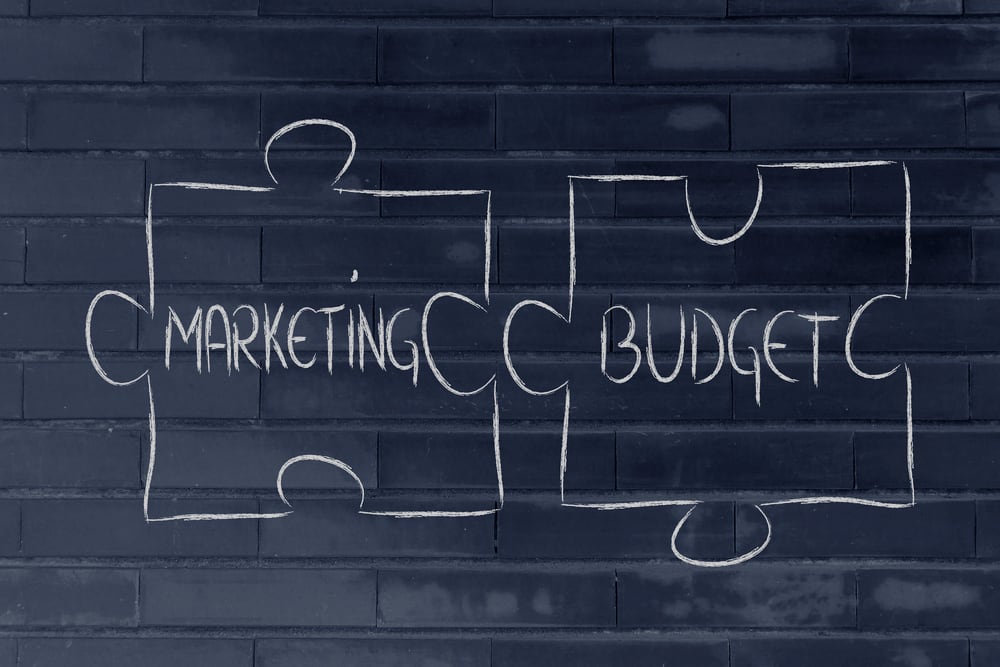 MARKETING BUDGET